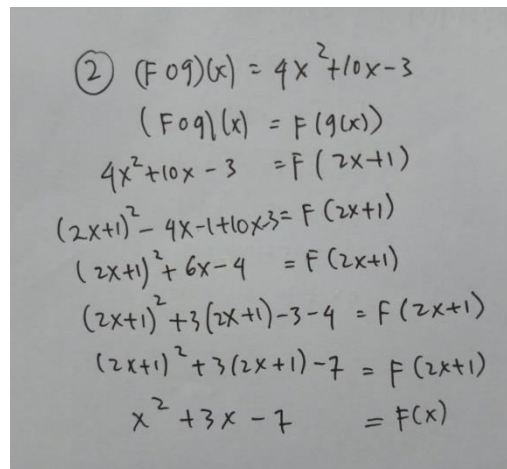 ② (F o g)(x) = 4x²+10x-3
(F o g)(x) = F(g(x))
4x²+10x-3 = F(2x+1)
(2x+1)²-4x-1+10x-3 = F(2x+1)
(2x+1)²+6x-4 = F(2x+1)
(2x+1)²+3(2x+1)-3-4 = F(2x+1)
(2x+1)²+3(2x+1)-7 = F(2x+1)
x²+3x-7 = F(x)